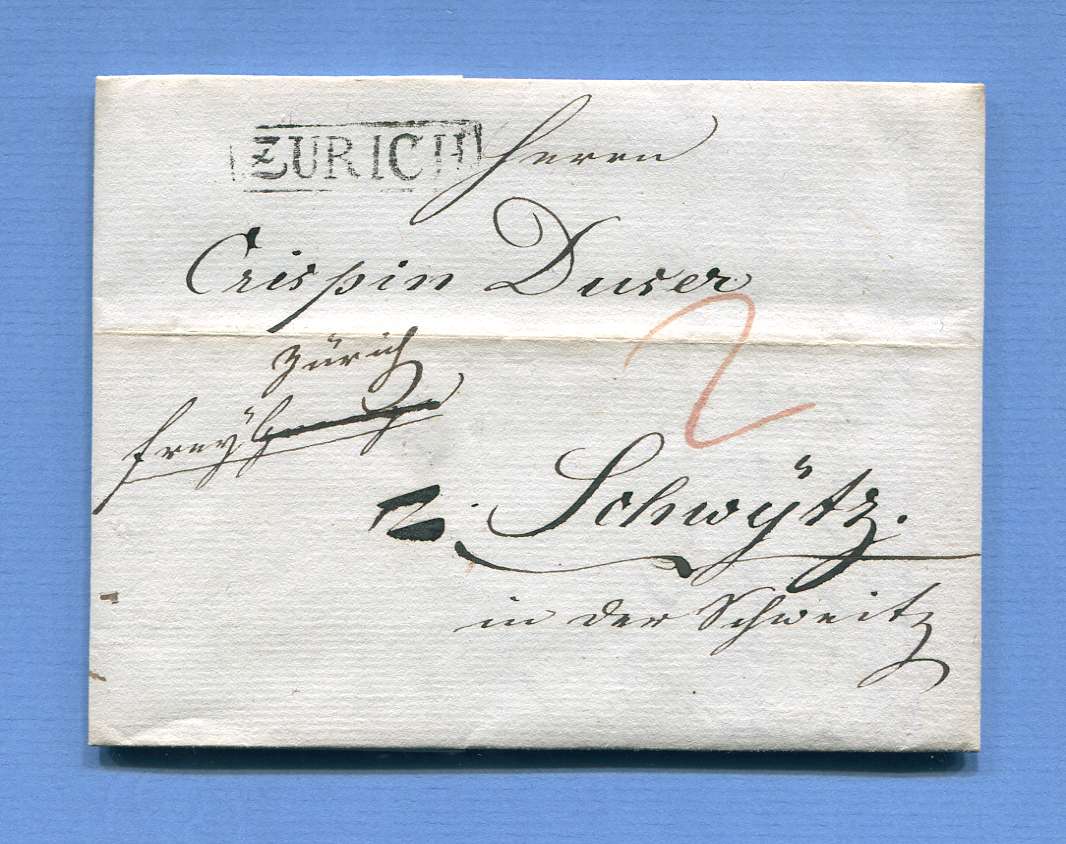 ZURICH
Herrn
Crispin Duser
Zürich
frey
2
Schwÿtz.
in der Schweitz